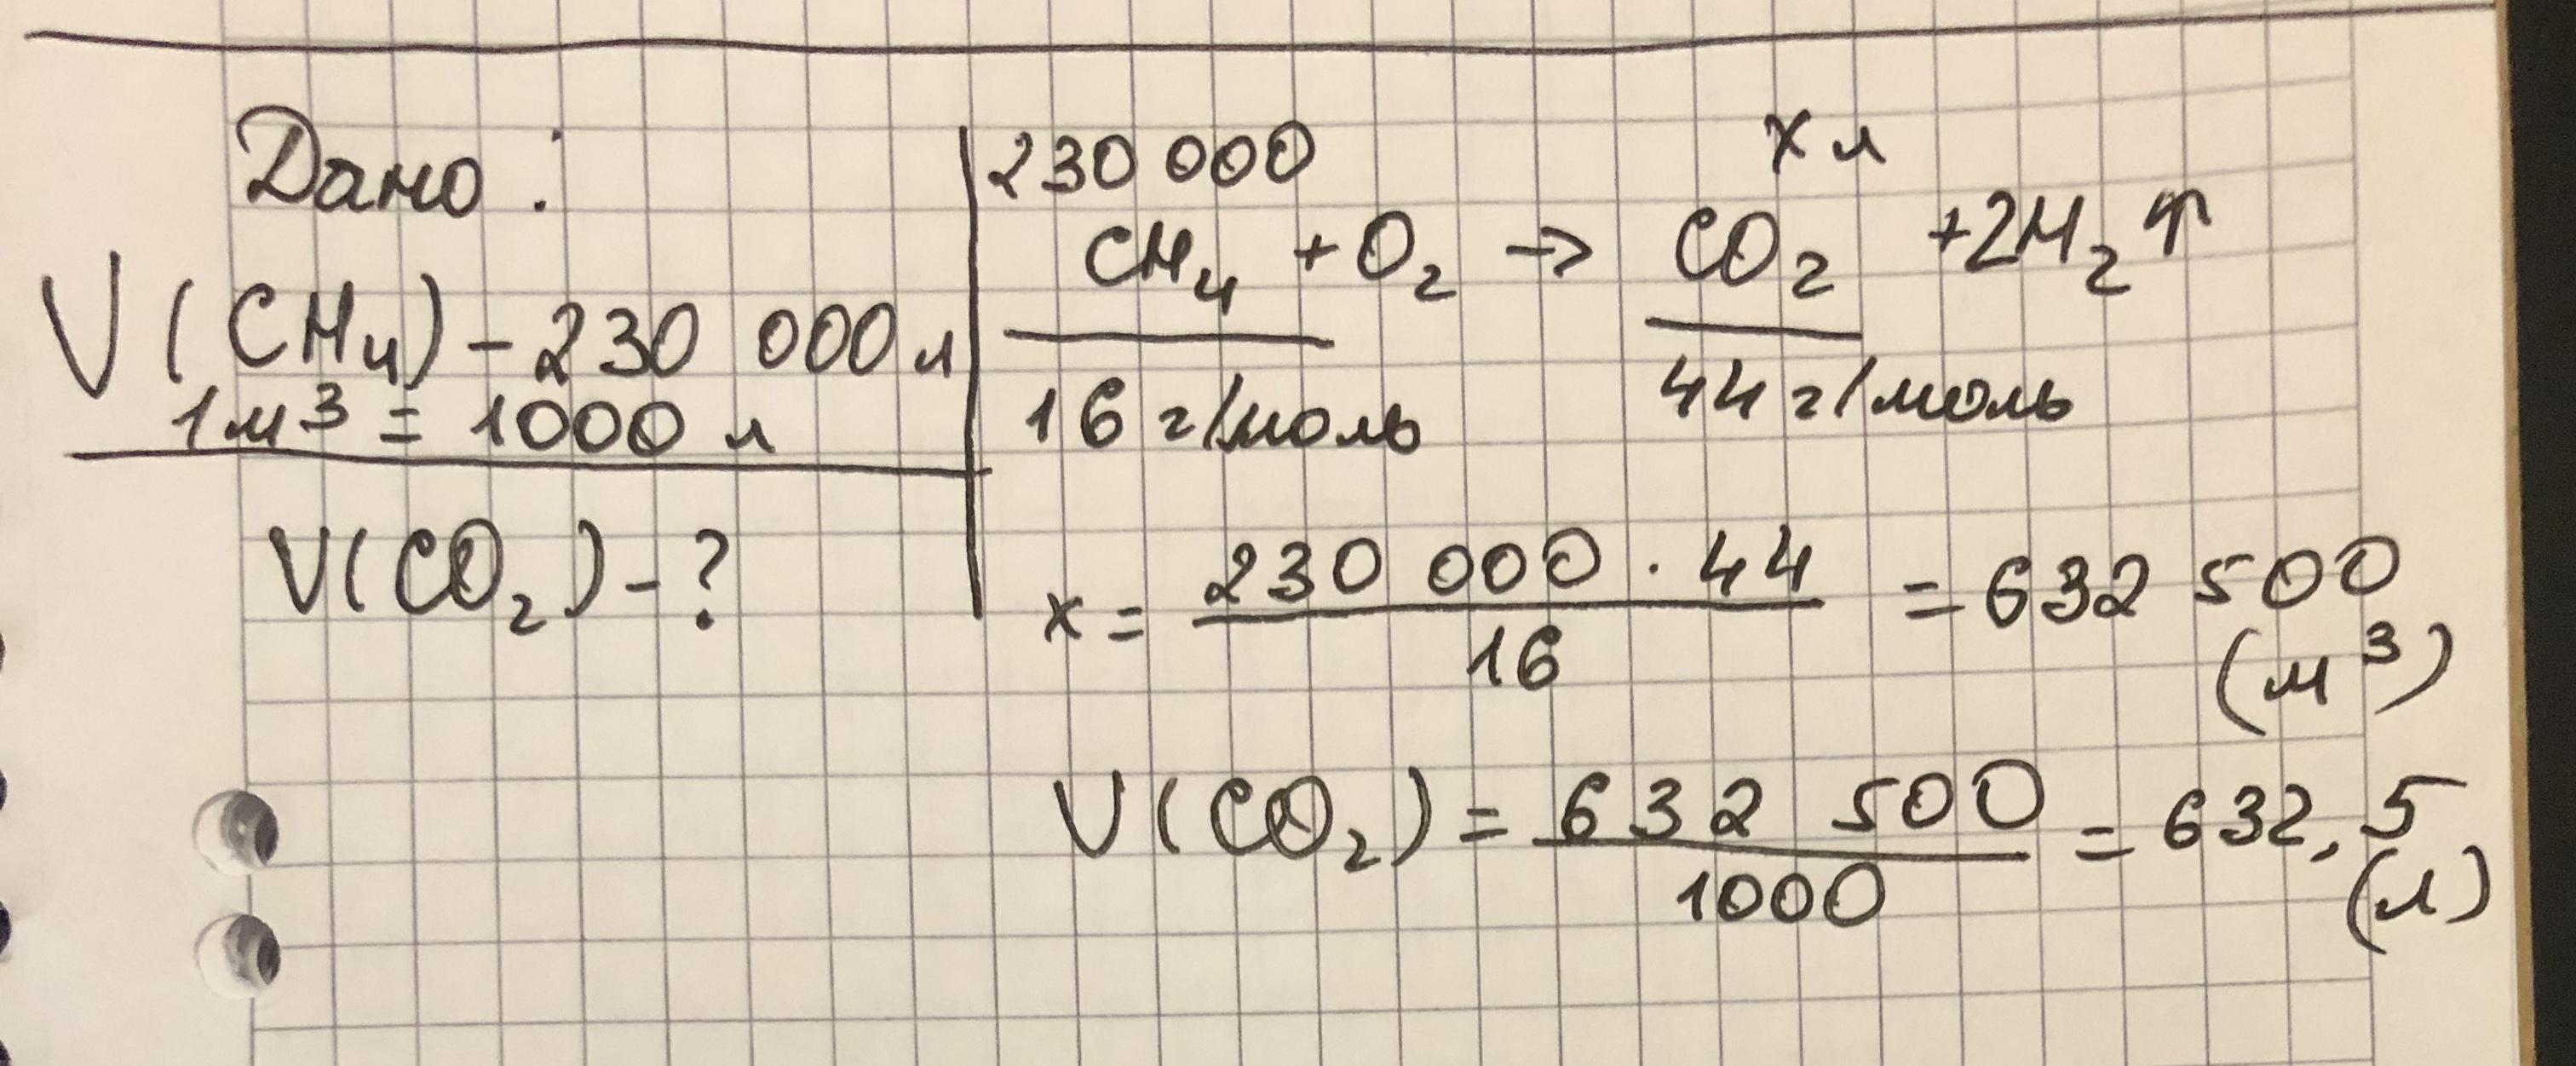 Дано:
V(CH₄) – 230 000 л
1 м³ = 1000 л
V(CO₂) – ?
230 000 x л
CH₄ + O₂ → CO₂ + 2H₂↑
16 г/моль 44 г/моль
x = 230 000 · 44 / 16 = 632 500 (м³)
V(CO₂) = 632 500 / 1000 = 632,5 (л)